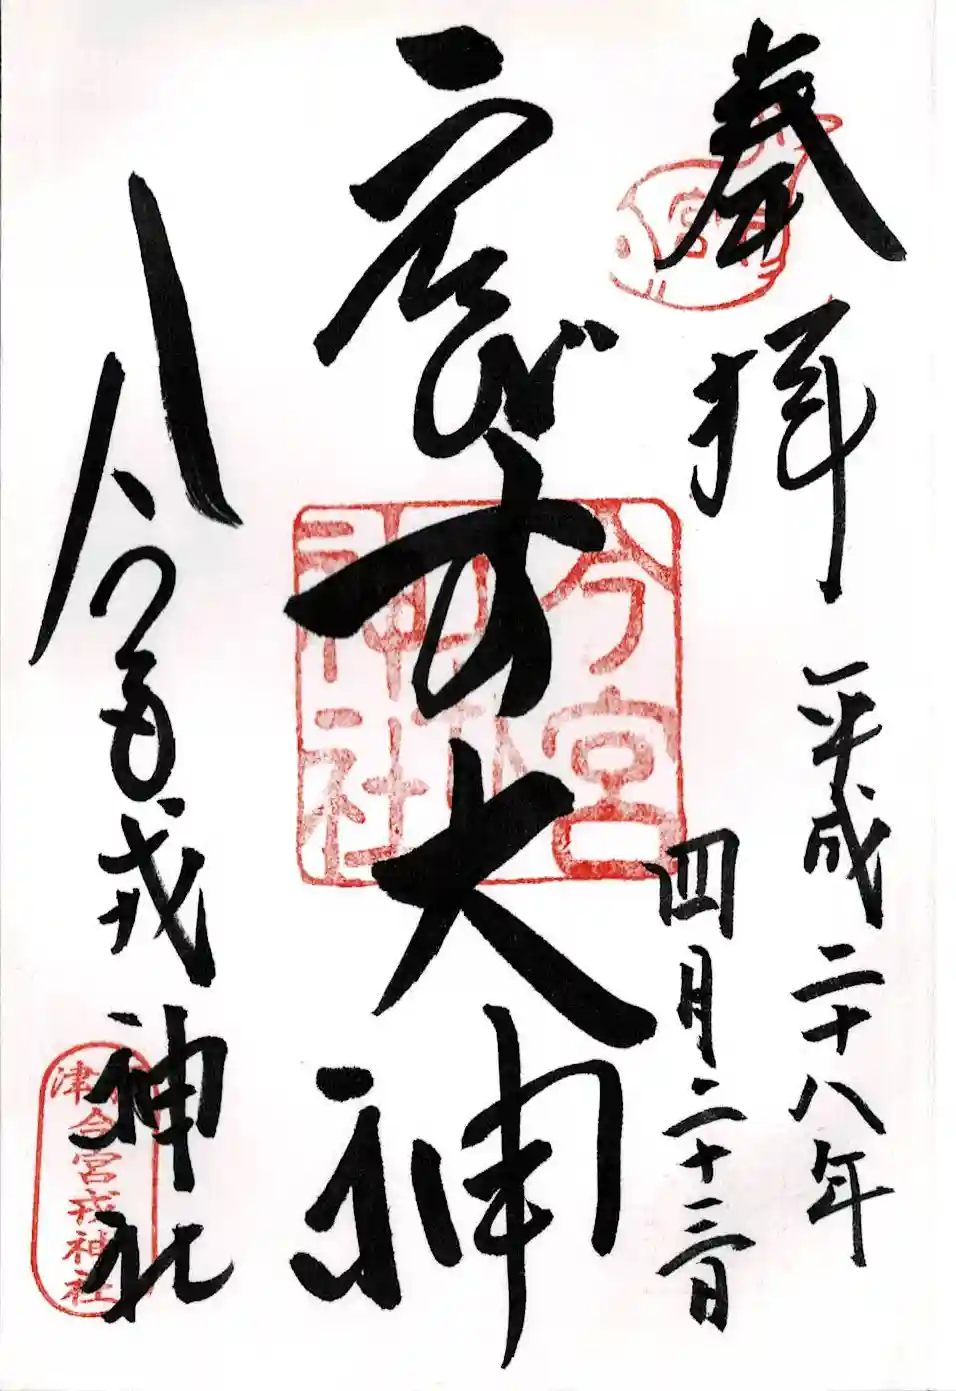 奉拝
平成二十八年
四月二十三日
えびす大神
今宮戎神社
今宮戎神社
今宮戎神社